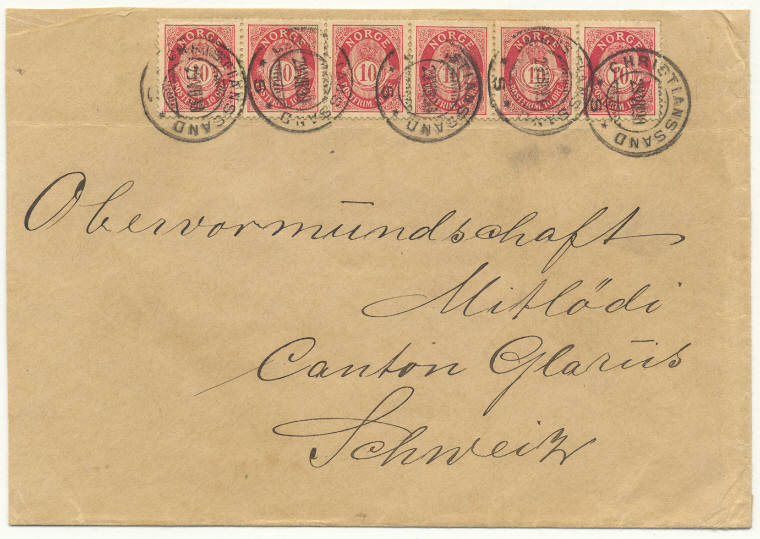 NORGE NORGE NORGE NORGE NORGE NORGE
10 10 10 10 10 10
CHRISTIANSSAND S
CHRISTIANSSAND S
Obervormundschaft
Mitlödi
Canton Glarus
Schweiz